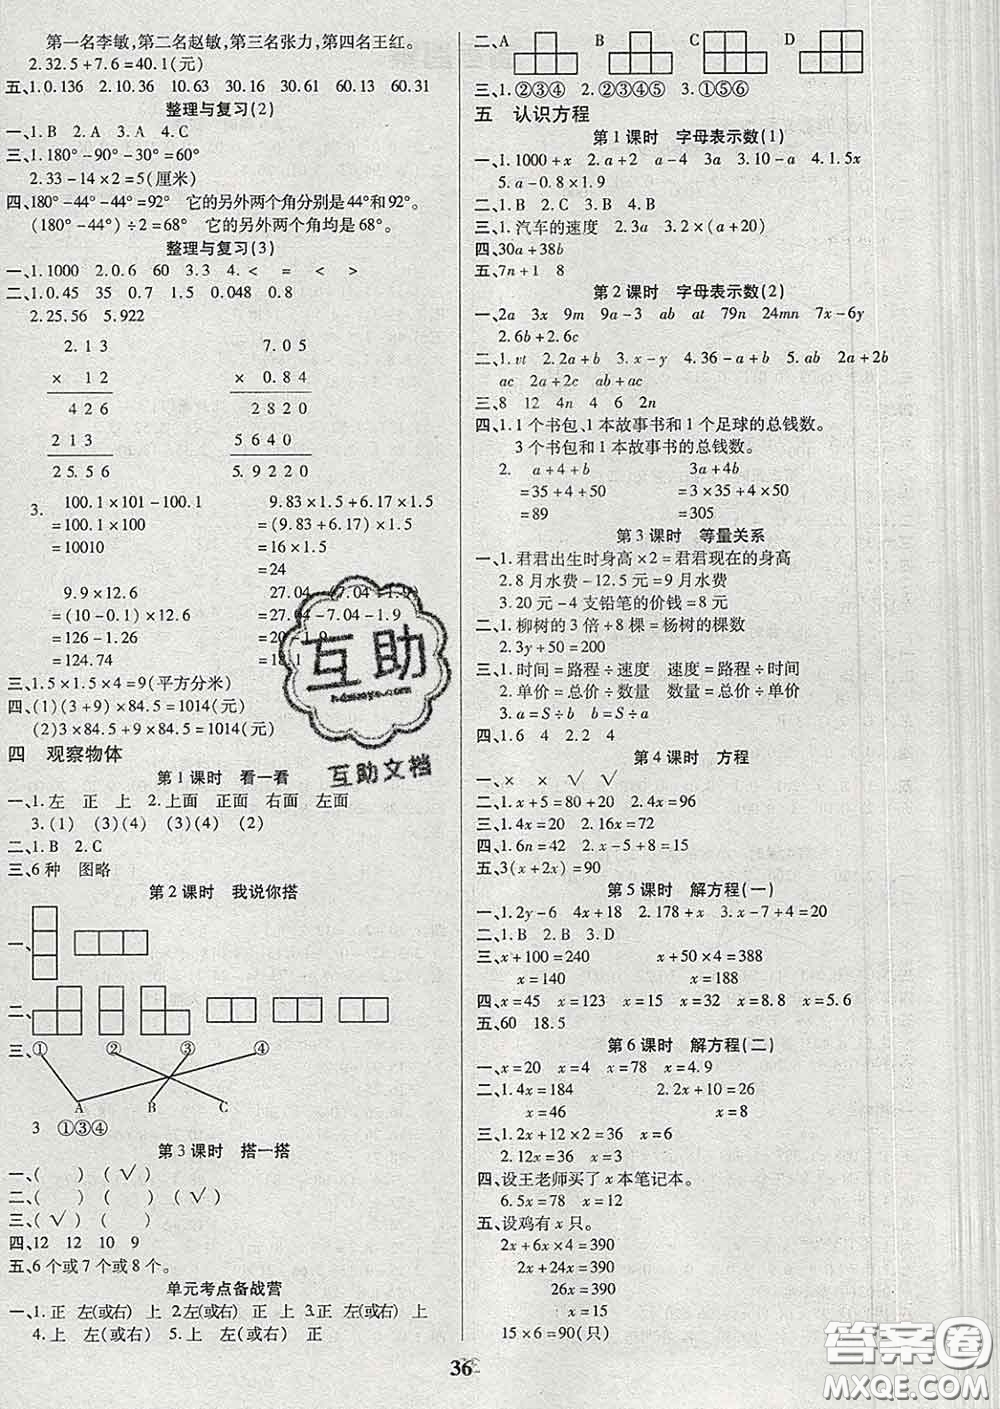 第一名李敏,第二名赵敏,第三名张力,第四名王红。
2.32.5+7.6=40.1(元)
五、1.0.136 2.10.36 10.63 30.16 30.61 60.13 60.31
整理与复习(2)
一、1.B 2.A 3.A 4.C
三、1.180°-90°-30°=60°
2.33-14×2=5(厘米)
四、180°-44°-44°=92° 它的另外两个角分别是44°和92°。
(180°-44°)÷2=68° 它的另外两个角均是68°。
整理与复习(3)
一、1.1000 2.0.6 60 3.3 4.< = < >
二、1.0.45 35 0.7 1.5 0.048 0.8
2.25.56 5.922
2.13 7.05
× 12 × 0.84
426 2820
213 5640
25.56 5.9220
3. 100.1×101-100.1 9.83×1.5+6.17×1.5
=100.1×100 =(9.83+6.17)×1.5
=10010 =16×1.5
=24
9.9×12.6 27.04-7.04-1.9
=(10-0.1)×12.6 =27.04-7.04-1.9
=126-1.26 =20-1.9
=124.74 =18.1
三、1.5×1.5×4=9(平方分米)
四、(1)(3+9)×84.5=1014(元)
(2)3×84.5+9×84.5=1014(元)
四 观察物体
第1课时 看一看
一、1.左 正 上 2.上面 正面 右面 左面
3.(1) (3)(4) (3)(4) (2)
二、1.B 2.C
三、6种 图略
第2课时 我说你搭
一、
二、
三、① ② ③ ④
A B C
3 ①③④
第3课时 搭一搭
一、( ) ( ) (√)
二、( ) ( ) (√)
三、(√) ( )
四、12 12 10 9
五、6个或7个或8个。
单元考点备战营
一、1.正 左(或右) 上 2.左(或右) 正 上 3.正 左(或右) 上
4.上 左(或右) 5.上 左(或右) 正
二、A B C D
三、1.②③④ 2.②③④⑤ 3.①⑤⑥
五 认识方程
第1课时 字母表示数(1)
一、1.1000+x 2.a+2 a-4 3a 3.10-m 4.1.5x
5.a-0.8×1.9
二、1.B 2.B 3.B 4.B
三、1.汽车的速度 2.3a 3.2×(a+20)
四、30a+38b
五、7n+1 8
第2课时 字母表示数(2)
一、2a 3x 9m 9a-3 ab at 79n 24mn 7x-6y
2.6b+2.6c
二、1.vt 2.2a+b 3.x-y 4.36-a-b 5.ab 2a+2b
ac 2a+2c ab+ac
三、8 12 4n 4 6 2n
四、1.1个书包、1本故事书和1个足球的总钱数。
3个书包和1本故事书的总钱数。
2. a+4+b 3a+4b
=35+4+50 =3×35+4×50
=89 =305
第3课时 等量关系
一、1.君君出生时身高×2=君君现在的身高
2.8月水费-12.5元=9月水费
3.20元-4支铅笔的价钱=8元
二、1.柳树的3倍+8棵=杨树的棵数
2.3y+50=200
三、1.时间=路程÷速度 速度=路程÷时间
2.单价=总价÷数量 数量=总价÷单价
3.a=S÷b b=S÷a
四、1.6 4 2.2 4
第4课时 方程
一、× × √ √
二、1.x+5=80+20 2.4x=96
三、1.4x=20 2.16x=72
四、1.6n=42 2.x-5+8=15
五、3(x+2x)=90
第5课时 解方程(一)
一、1.2y-6 4x+18 2.178+x 3.x-7+4=20
二、1.B 2.B 3.D
三、x+100=240 x+50×4=388
x=140 x=188
四、x=45 x=123 x=15 x=32 x=8.8 x=5.6
五、60 18.5
第6课时 解方程(二)
一、x=20 x=4 x=78 x=4.9
二、1.4x=184 2.2x+10=26
x=46 x=8
三、1.2x+12×2=36 x=6
2.12x=36 x=3
四、设王老师买了x本笔记本。
6.5x=78 x=12
五、设鸡有x只。
2x+6x×4=390
2x+24x=390
26x=390
x=15
15×6=90(只)
36
互助
互助文档
答案圈
MXQE.COM